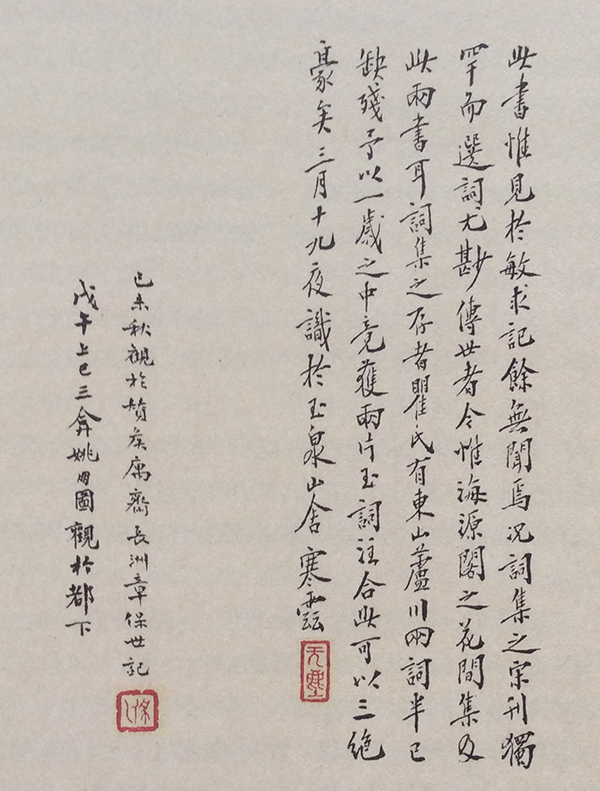 此書惟見於敏求記餘無聞焉況詞集之宋刊獨
罕而選詞尤尠傳世者今惟海源閣之花間集及
此兩書耳詞集之存者瞿氏有東山蘆川兩詞半已
缺殘予以一歲之中竟獲兩片玉詞注合此可以三絕
豪矣三月十九夜識於玉泉山舍寒雲
无塵
己未秋觀於賃廡齋長洲章保世記
戊午上巳三弇姚朋圖觀於都下